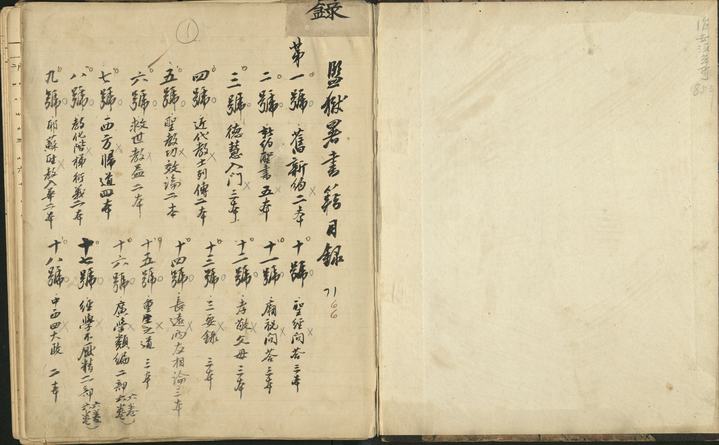 錄
1
監獄署書籍目錄
第一號 舊新約二本
二號 新約聖書五本
三號 德慧入门 三本
四號 近代教士列傳二本
五號 聖教功效論二本
六號 救世教益二本
七號 西方歸道四本
八號 教化階梯衍義二本
九號 耶蘇聖教入華二本
十號 聖經问答三本
十一號 廟祝问答三本
十二號 孝敬父母三本
十三號 三要錄 三本
十四號 長遠两友相論三本
十五號 重生之道 三本
十六號 廣學類編二部
十七號 經學不厭精二部
十八號 中西四大政 二本